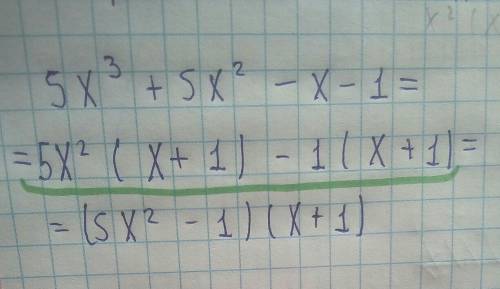 5x³ + 5x² - x - 1 =
= 5x² ( x + 1 ) - 1 ( x + 1 ) =
= (5x² - 1 ) ( x + 1 )